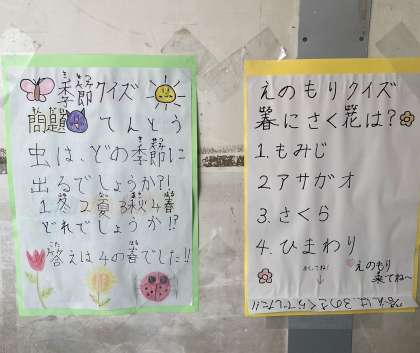 季節クイズ
問題 てんとう
虫は、どの季節に
出るでしょうか?!
1冬2夏3秋4春
どれでしょうか!?
答えは4の春でした!!
えのもりクイズ
春にさく花は?
1.もみじ
2アサガオ
3.さくら
4.ひまわり
めくってね!
えのもり
来てね〜
答えは、3のさくらでした!!